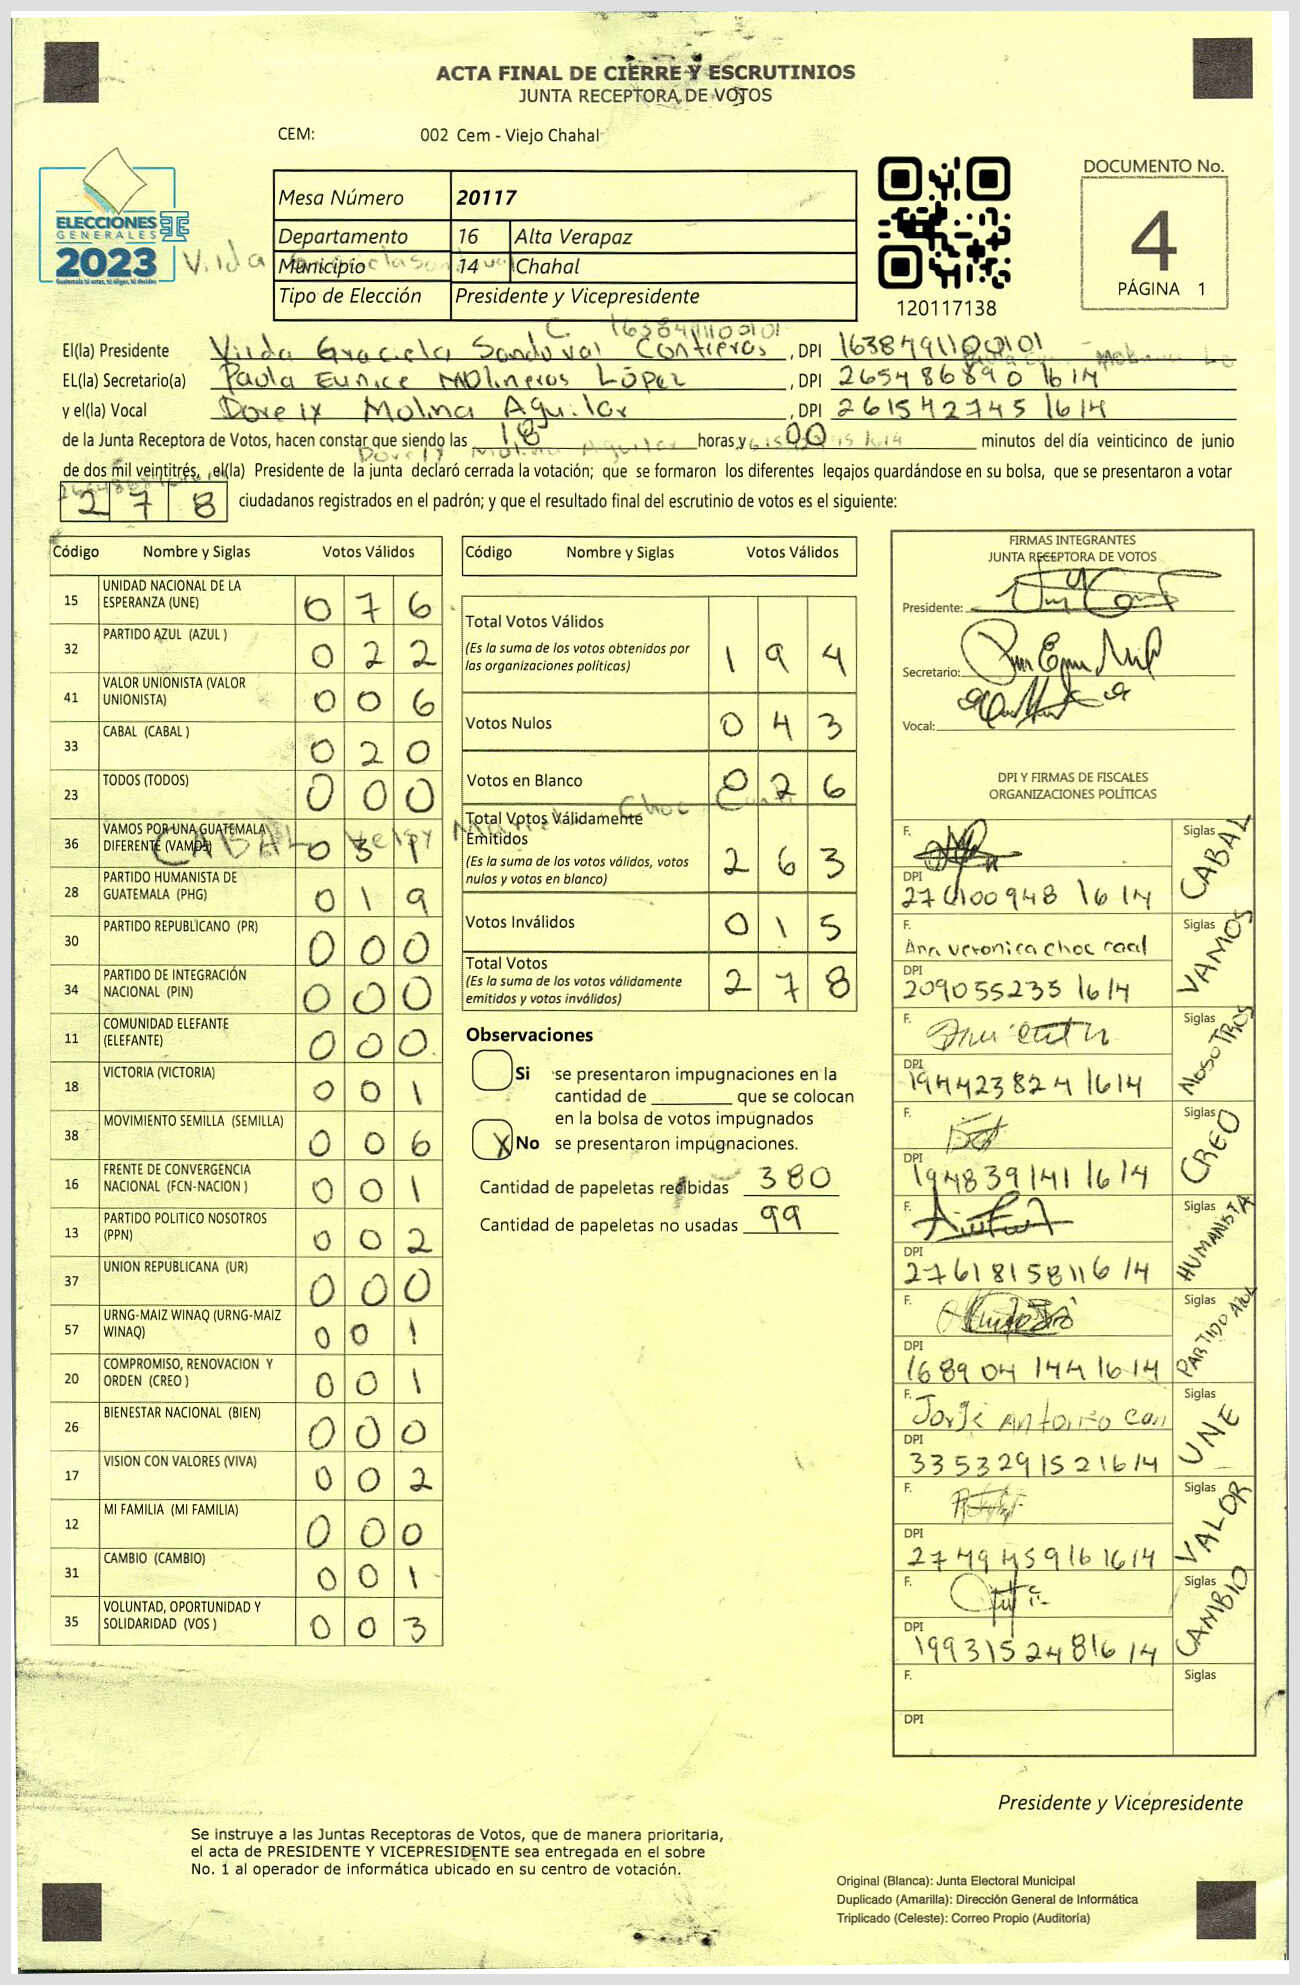 ACTA FINAL DE CIERRE Y ESCRUTINIOS
JUNTA RECEPTORA DE VOTOS
CEM: 002 Cem - Viejo Chahal
ELECCIONES
GENERALES
2023
Guatemala tú votas, tú eliges, tú decides
Mesa Número 20117
Departamento 16 Alta Verapaz
Municipio 14 Chahal
Tipo de Elección Presidente y Vicepresidente
120117138
DOCUMENTO No.
4
PÁGINA 1
El(la) Presidente Vilda Graciela Sandoval Contreras, DPI 1638491100101
EL(la) Secretario(a) Paula Eunice Molineros López, DPI 265486890 1614
y el(la) Vocal Doreix Molina Aguilar, DPI 261542745 1614
de la Junta Receptora de Votos, hacen constar que siendo las 18 horas y 00 minutos del día veinticinco de junio
de dos mil veintitrés, el(la) Presidente de la junta declaró cerrada la votación; que se formaron los diferentes legajos quardándose en su bolsa, que se presentaron a votar
278 ciudadanos registrados en el padrón; y que el resultado final del escrutinio de votos es el siguiente:
Código Nombre y Siglas Votos Válidos
15 UNIDAD NACIONAL DE LA ESPERANZA (UNE) 076
32 PARTIDO AZUL (AZUL ) 022
41 VALOR UNIONISTA (VALOR UNIONISTA) 006
33 CABAL (CABAL ) 020
23 TODOS (TODOS) 000
36 VAMOS POR UNA GUATEMALA DIFERENTE (VAMOS) 031
28 PARTIDO HUMANISTA DE GUATEMALA (PHG) 019
30 PARTIDO REPUBLICANO (PR) 000
34 PARTIDO DE INTEGRACIÓN NACIONAL (PIN) 000
11 COMUNIDAD ELEFANTE (ELEFANTE) 000
18 VICTORIA (VICTORIA) 001
38 MOVIMIENTO SEMILLA (SEMILLA) 006
16 FRENTE DE CONVERGENCIA NACIONAL (FCN-NACION ) 001
13 PARTIDO POLITICO NOSOTROS (PPN) 002
37 UNION REPUBLICANA (UR) 000
57 URNG-MAIZ WINAQ (URNG-MAIZ WINAQ) 001
20 COMPROMISO, RENOVACION Y ORDEN (CREO ) 001
26 BIENESTAR NACIONAL (BIEN) 000
17 VISION CON VALORES (VIVA) 002
12 MI FAMILIA (MI FAMILIA) 000
31 CAMBIO (CAMBIO) 001
35 VOLUNTAD, OPORTUNIDAD Y SOLIDARIDAD (VOS ) 003
Código Nombre y Siglas Votos Válidos
Total Votos Válidos 194
(Es la suma de los votos obtenidos por
las organizaciones políticas)
Votos Nulos 043
Votos en Blanco 026
Total Votos Válidamente
Emitidos 263
(Es la suma de los votos válidos, votos
nulos y votos en blanco)
Votos Inválidos 015
Total Votos 278
(Es la suma de los votos válidamente
emitidos y votos inválidos)
Observaciones
Si se presentaron impugnaciones en la
cantidad de ________ que se colocan
en la bolsa de votos impugnados
X No se presentaron impugnaciones.
Cantidad de papeletas recibidas 380
Cantidad de papeletas no usadas 99
FIRMAS INTEGRANTES
JUNTA RECEPTORA DE VOTOS
Presidente:
Secretario:
Vocal:
DPI Y FIRMAS DE FISCALES
ORGANIZACIONES POLÍTICAS
F. Siglas CABAL
DPI 276100948 1614
F. Ana Veronica choc caal Siglas VAMOS
DPI 209055235 1614
F. Siglas NOSOTROS
DPI 194423824 1614
F. Siglas CREO
DPI 194839141 1614
F. Siglas HUMANISTA
DPI 276181581 1614
F. Siglas PARTIDO AZUL
DPI 168904144 1614
F. Jorge Antonio Caal Siglas UNE
DPI 335329152 1614
F. Siglas VALOR
DPI 274945916 1614
F. Siglas CAMBIO
DPI 199315248 1614
F. Siglas
DPI
Presidente y Vicepresidente
Se instruye a las Juntas Receptoras de Votos, que de manera prioritaria,
el acta de PRESIDENTE Y VICEPRESIDENTE sea entregada en el sobre
No. 1 al operador de informática ubicado en su centro de votación.
Original (Blanca): Junta Electoral Municipal
Duplicado (Amarilla): Dirección General de Informática
Triplicado (Celeste): Correo Propio (Auditoría)